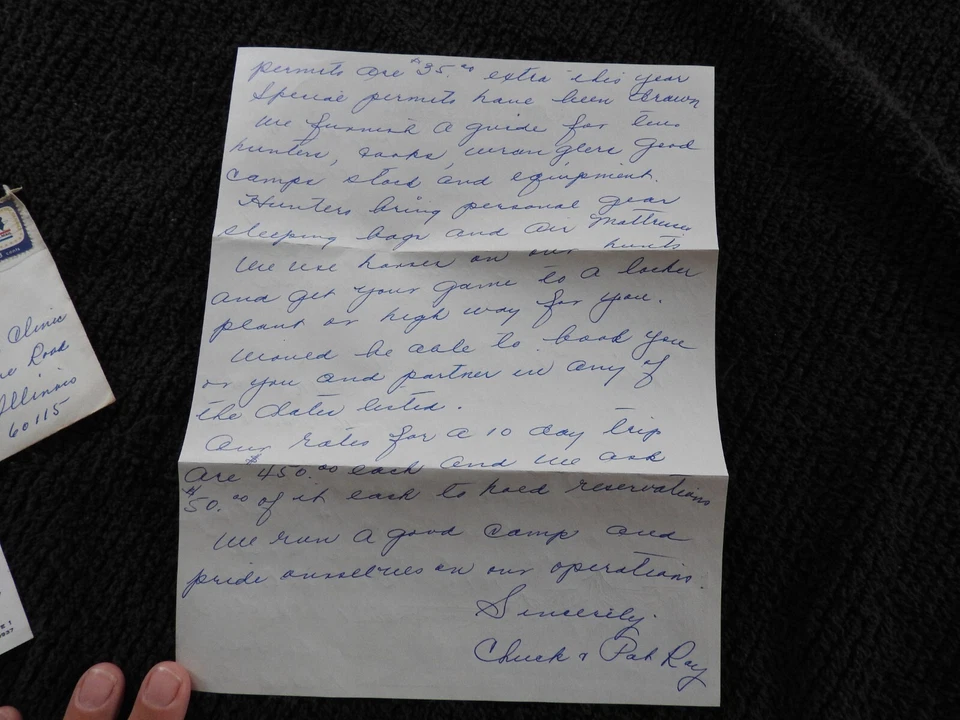 permits are $35.00 extra this year
Special permits have been drawn
We furnish a guide for two
hunters, cooks, wranglers good
camps stock and equipment.
Hunters bring personal gear
sleeping bags and air mattress
We use horses on our hunts
and get your game to a locker
plant or high way for you.
Would be able to book you
or you and partner in any of
the dates listed.
Our rates for a 10 day trip
are $450.00 each and we ask
$50.00 of it each to hold reservations
We run a good camp and
pride ourselves on our operations.
Sincerily.
Chuck & Pat Ray
Clinic
Road
Illinois
60115